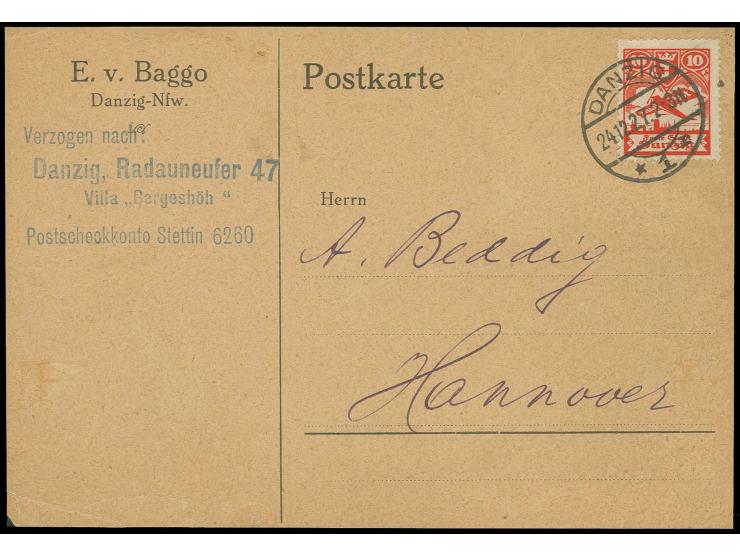 E. v. Baggo
Danzig-Nfw.
Verzogen nach:
Danzig, Radauneufer 47
Villa „Bergeshöh“
Postscheckkonto Stettin 6260
Postkarte
10
DANZIG
24.12.27.2
* 1
Danzig
Herrn
A. Beddig
Hannover